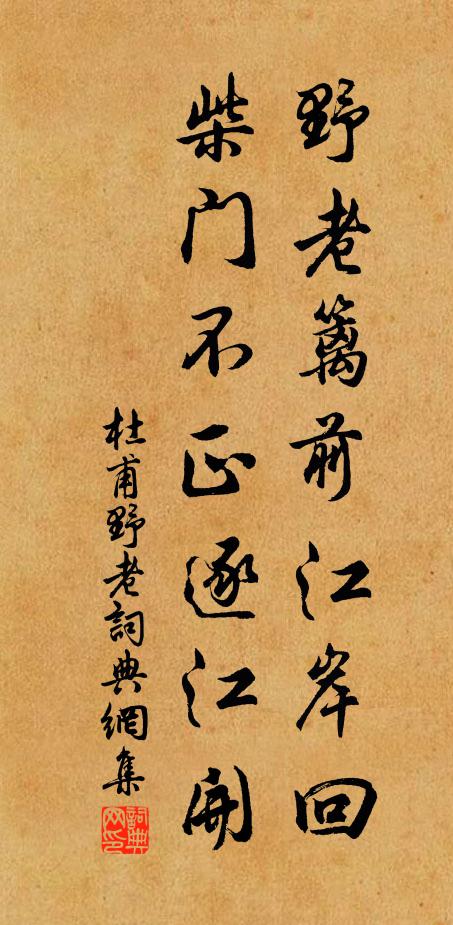 野老篱前江岸回
柴门不正逐江開
杜甫野老詞典網集
詞典网印